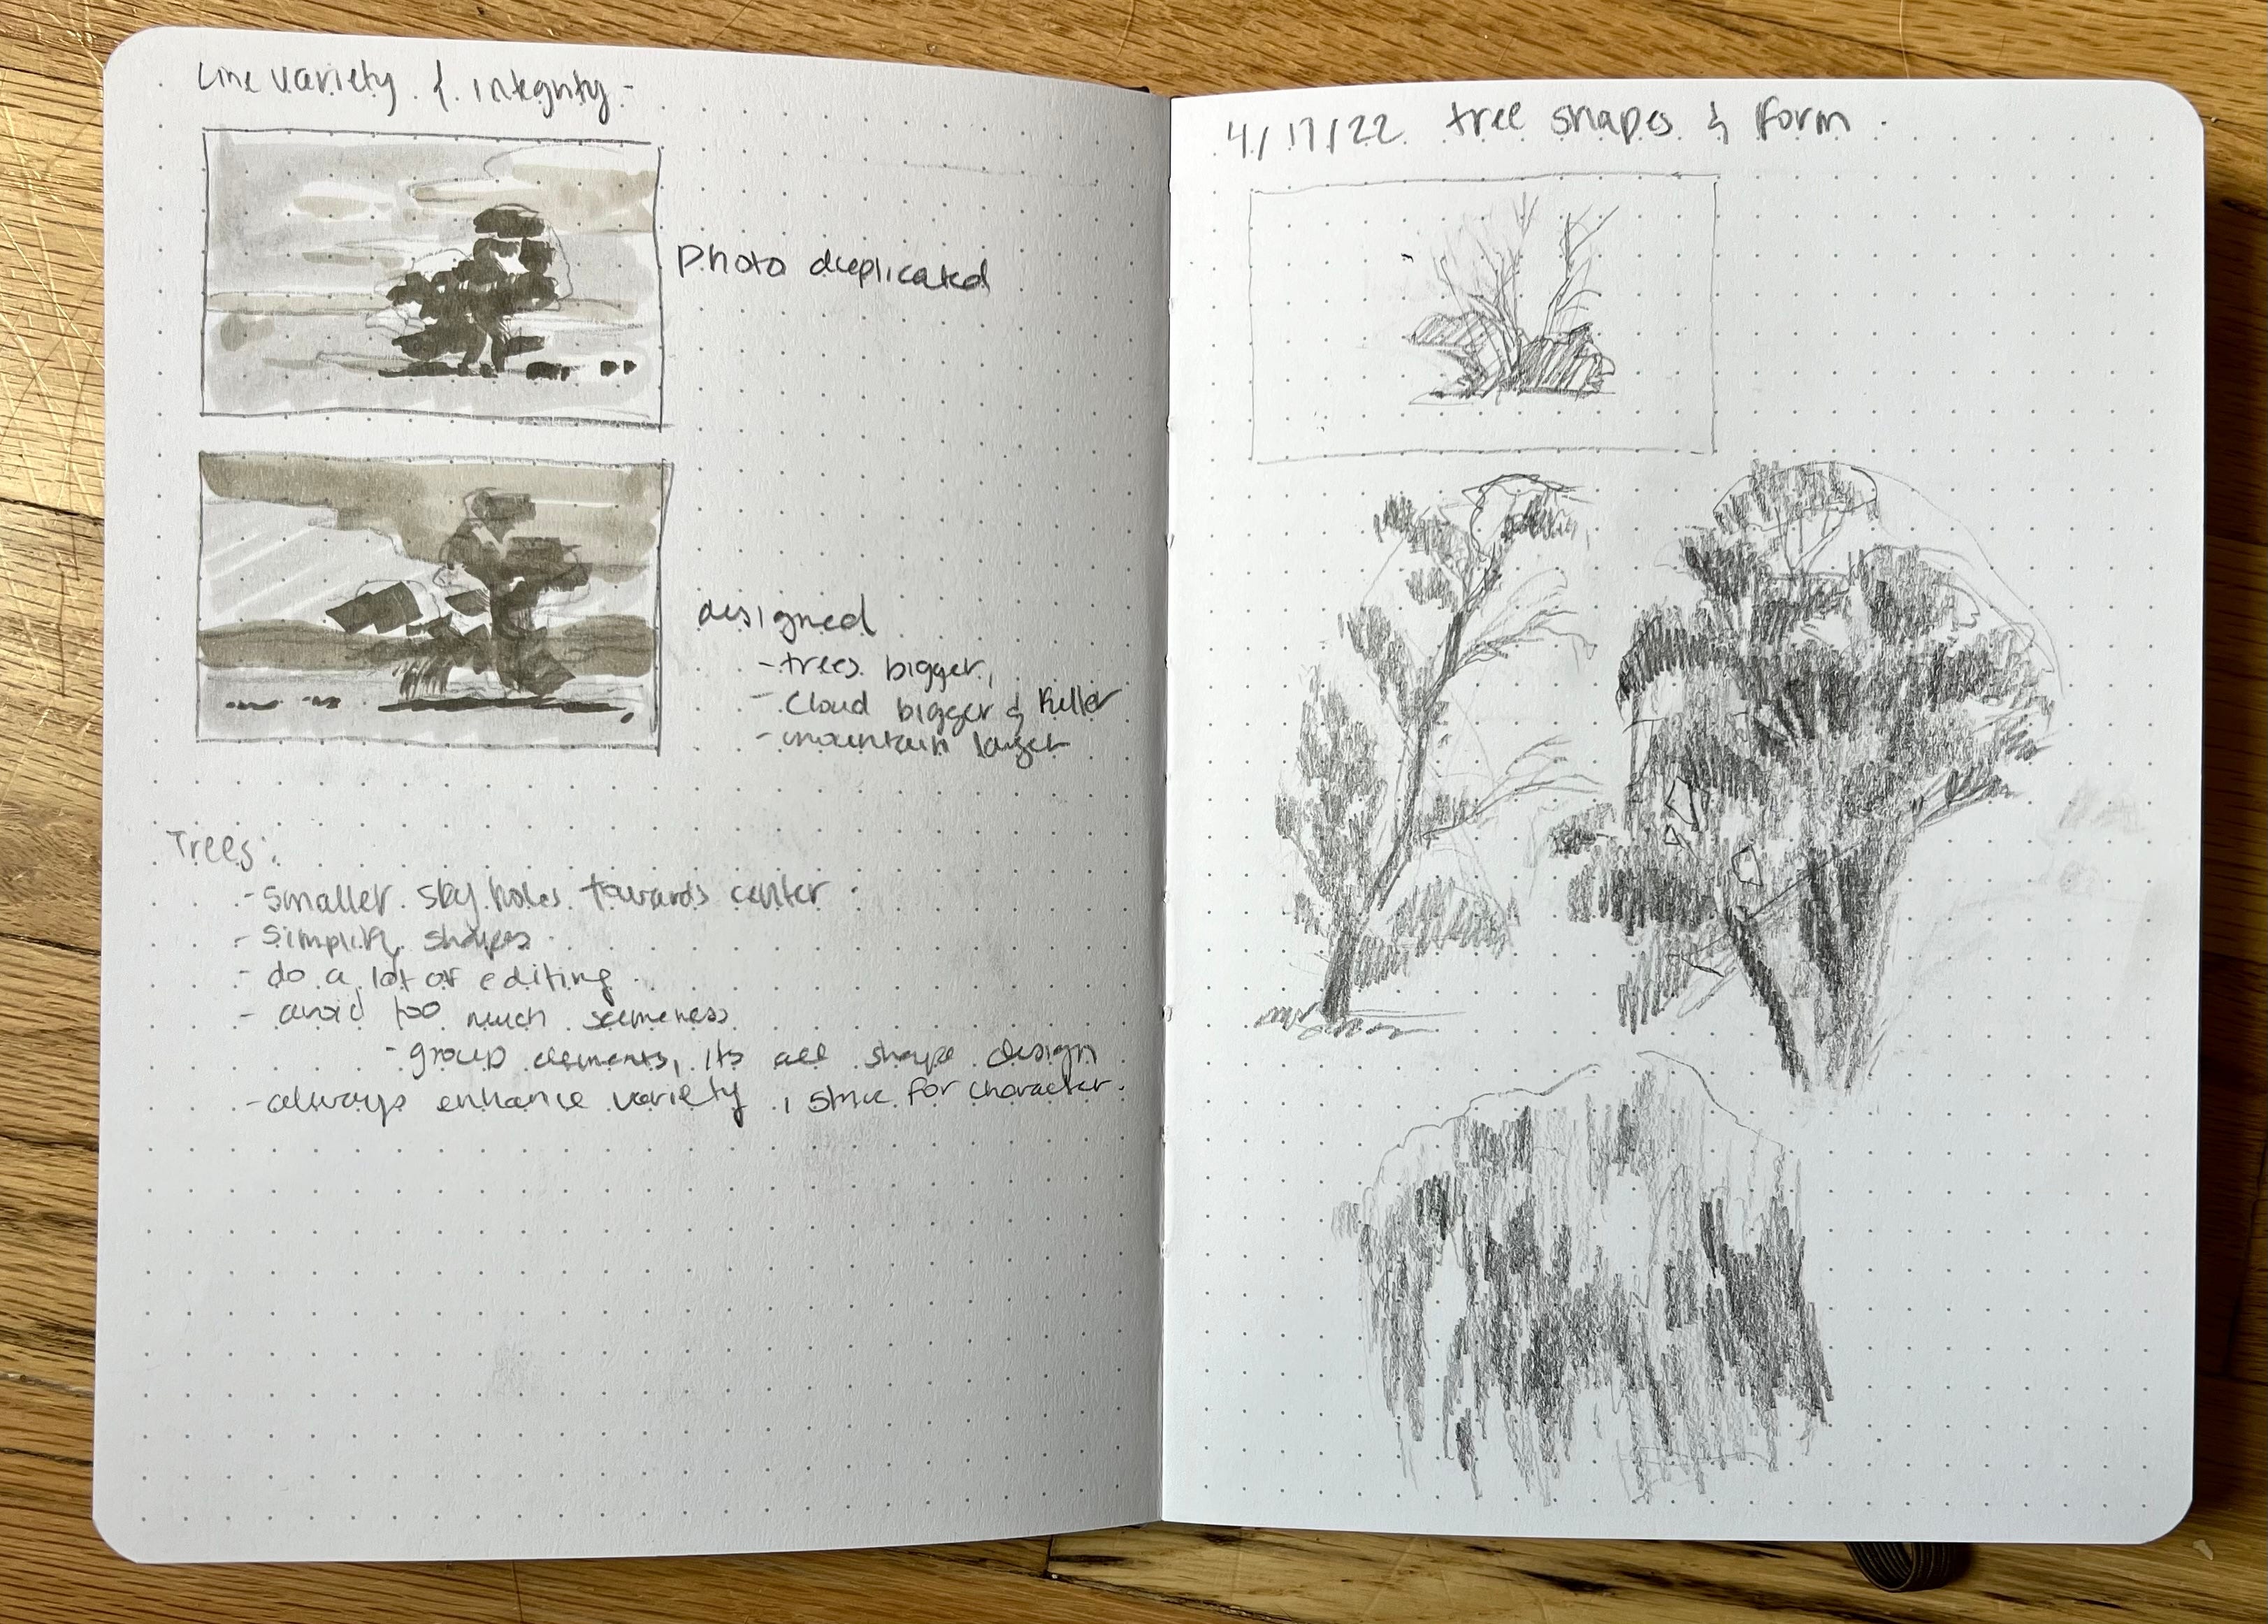 Line variety & integrity -
Photo duplicated
designed
- trees bigger,
- Cloud bigger & fuller
- mountain larger
Trees:
- Smaller sky holes towards center
- Simplify shapes
- do a lot of editing
- avoid too much sameness
- group elements, its all shape design
- always enhance variety, strive for character.
4/17/22 tree shapes & form